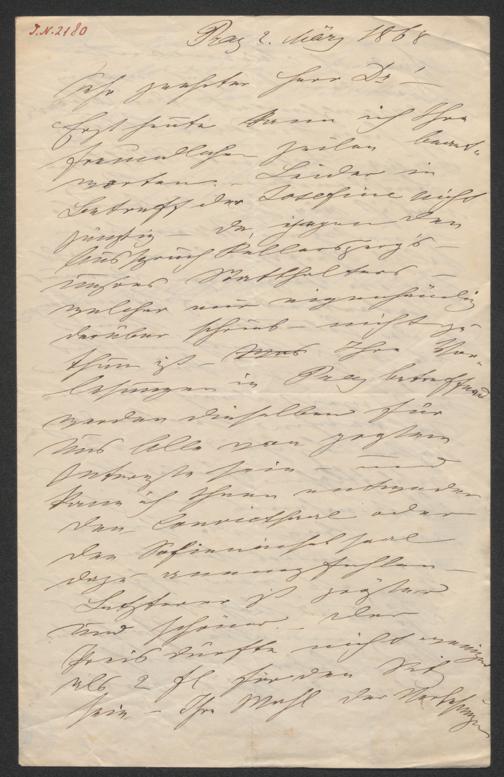 J.N. 2180
Prag 2. März 1868
Sehr geehrter Herr Dr
Erst heute kann ich Ihre
freundlichen Zeilen beant-
worten. – Leider in
Betreff der Josefine nicht
günstig – da, gegen den
Ausspruch Kellersperg's –
unseres Statthalters –
welcher mir eigenhändig
darüber schrieb – nichts zu
thun ist – Ihre Vor-
lesungen in Prag betreffend
werden dieselben für
uns Alle von größtem
Interesse sein – und
kann ich Ihnen entweder
den Convictsaal oder
den Sofieninselsaal
dazu anempfehlen –
Letzterer ist größer
und schöner – der
Preis dürfte nicht weniger
als 2 fl für den Sitz
sein – Ihre Wahl der Vorlesungen